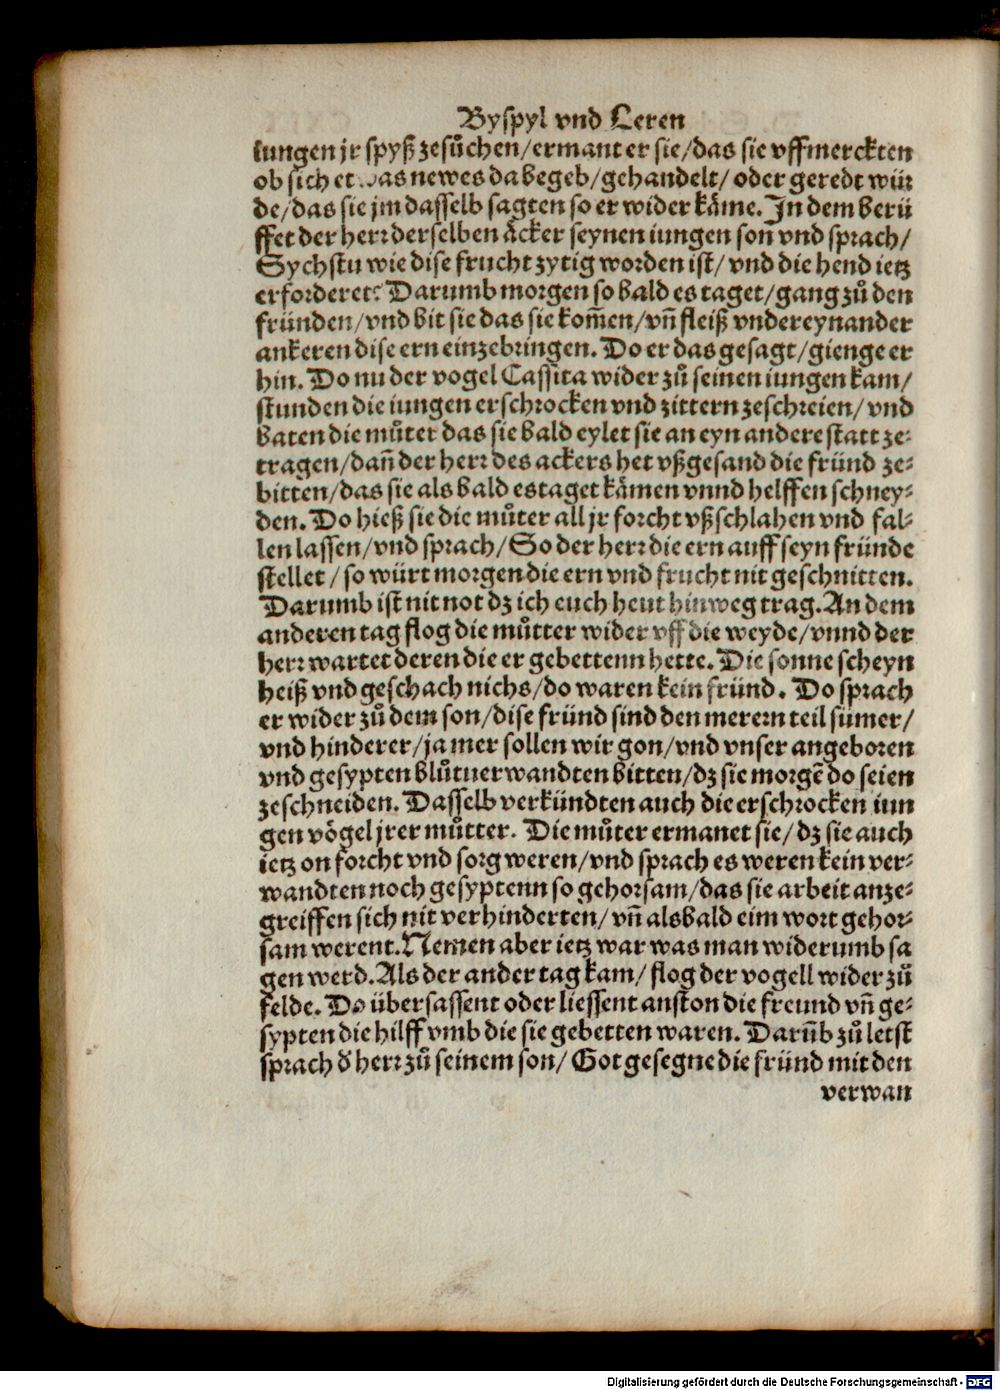 Byspyl vnd Leren
iungen jr spyß zesůchen/ermant er sie/das sie vffmerckten
ob sich et as newes da begeb/gehandelt/ oder geredt wür
de/das sie jm dasselb sagten so er wider käme. In dem berü
ffet der herr der selben äcker seynen iungen son vnd sprach/
Sychstu wie dise frucht zytig worden ist/ vnd die hend ietz
erforderet? Darumb morgen so bald es taget/gang zů den
fründen/vnd bit sie das sie kom̃en/vn̄ fleiß vndereynander
ankeren dise ern einzebringen. Do er das gesagt/gienge er
hin. Do nu der vogel Cassita wider zů seinen iungen kam/
stunden die iungen erschrocken vnd zittern zeschreien/ vnd
baten die můter das sie bald eylet sie an eyn andere statt ze⸗
tragen/dan̄ der herr des ackers het vßgesand die fründ ze⸗
bitten/das sie als bald es taget kämen vnnd helffen schney⸗
den. Do hieß sie die můter all jr forcht vßschlahen vnd fal⸗
len lassen/vnd sprach/ So der herr die ern auff seyn fründe
stellet/ so würt morgen die ern vnd frucht nit geschnitten.
Darumb ist nit not dz ich euch heut hinweg trag. An dem
anderen tag flog die můtter wider vff die weyde/vnnd der
herr wartet deren die er gebettenn hette. Die sonne scheyn
heiß vnd geschach nichs/do waren kein fründ. Do sprach
er wider zů dem son/dise fründ sind den merern teil sümer/
vnd hinderer/ja mer sollen wir gon/vnd vnser angeboren
vnd gesypten blůtuerwandten bitten/dz sie morgē do seien
zeschneiden. Dasselb verkündten auch die erschrocken iun
gen vögel jrer můtter. Die můter ermanet sie/dz sie auch
ietz on forcht vnd sorg weren/vnd sprach es weren kein ver⸗
wandten noch gesyptenn so gehorsam/das sie arbeit anze⸗
greiffen sich nit verhinderten/ vn̄ alsbald eim wort gehor⸗
sam werent. Nemen aber ietz war was man widerumb sa
gen werd. Als der ander tag kam/ flog der vogell wider zů
felde. Do übersassent oder liessent anston die freund vn̄ ge⸗
sypten die hilff vmb die sie gebetten waren. Darum̄b zů letst
sprach d̓ herr zů seinem son/ Got gesegne die fründ mit den
verwan
Digitalisierung gefördert durch die Deutsche Forschungsgemeinschaft - DFG